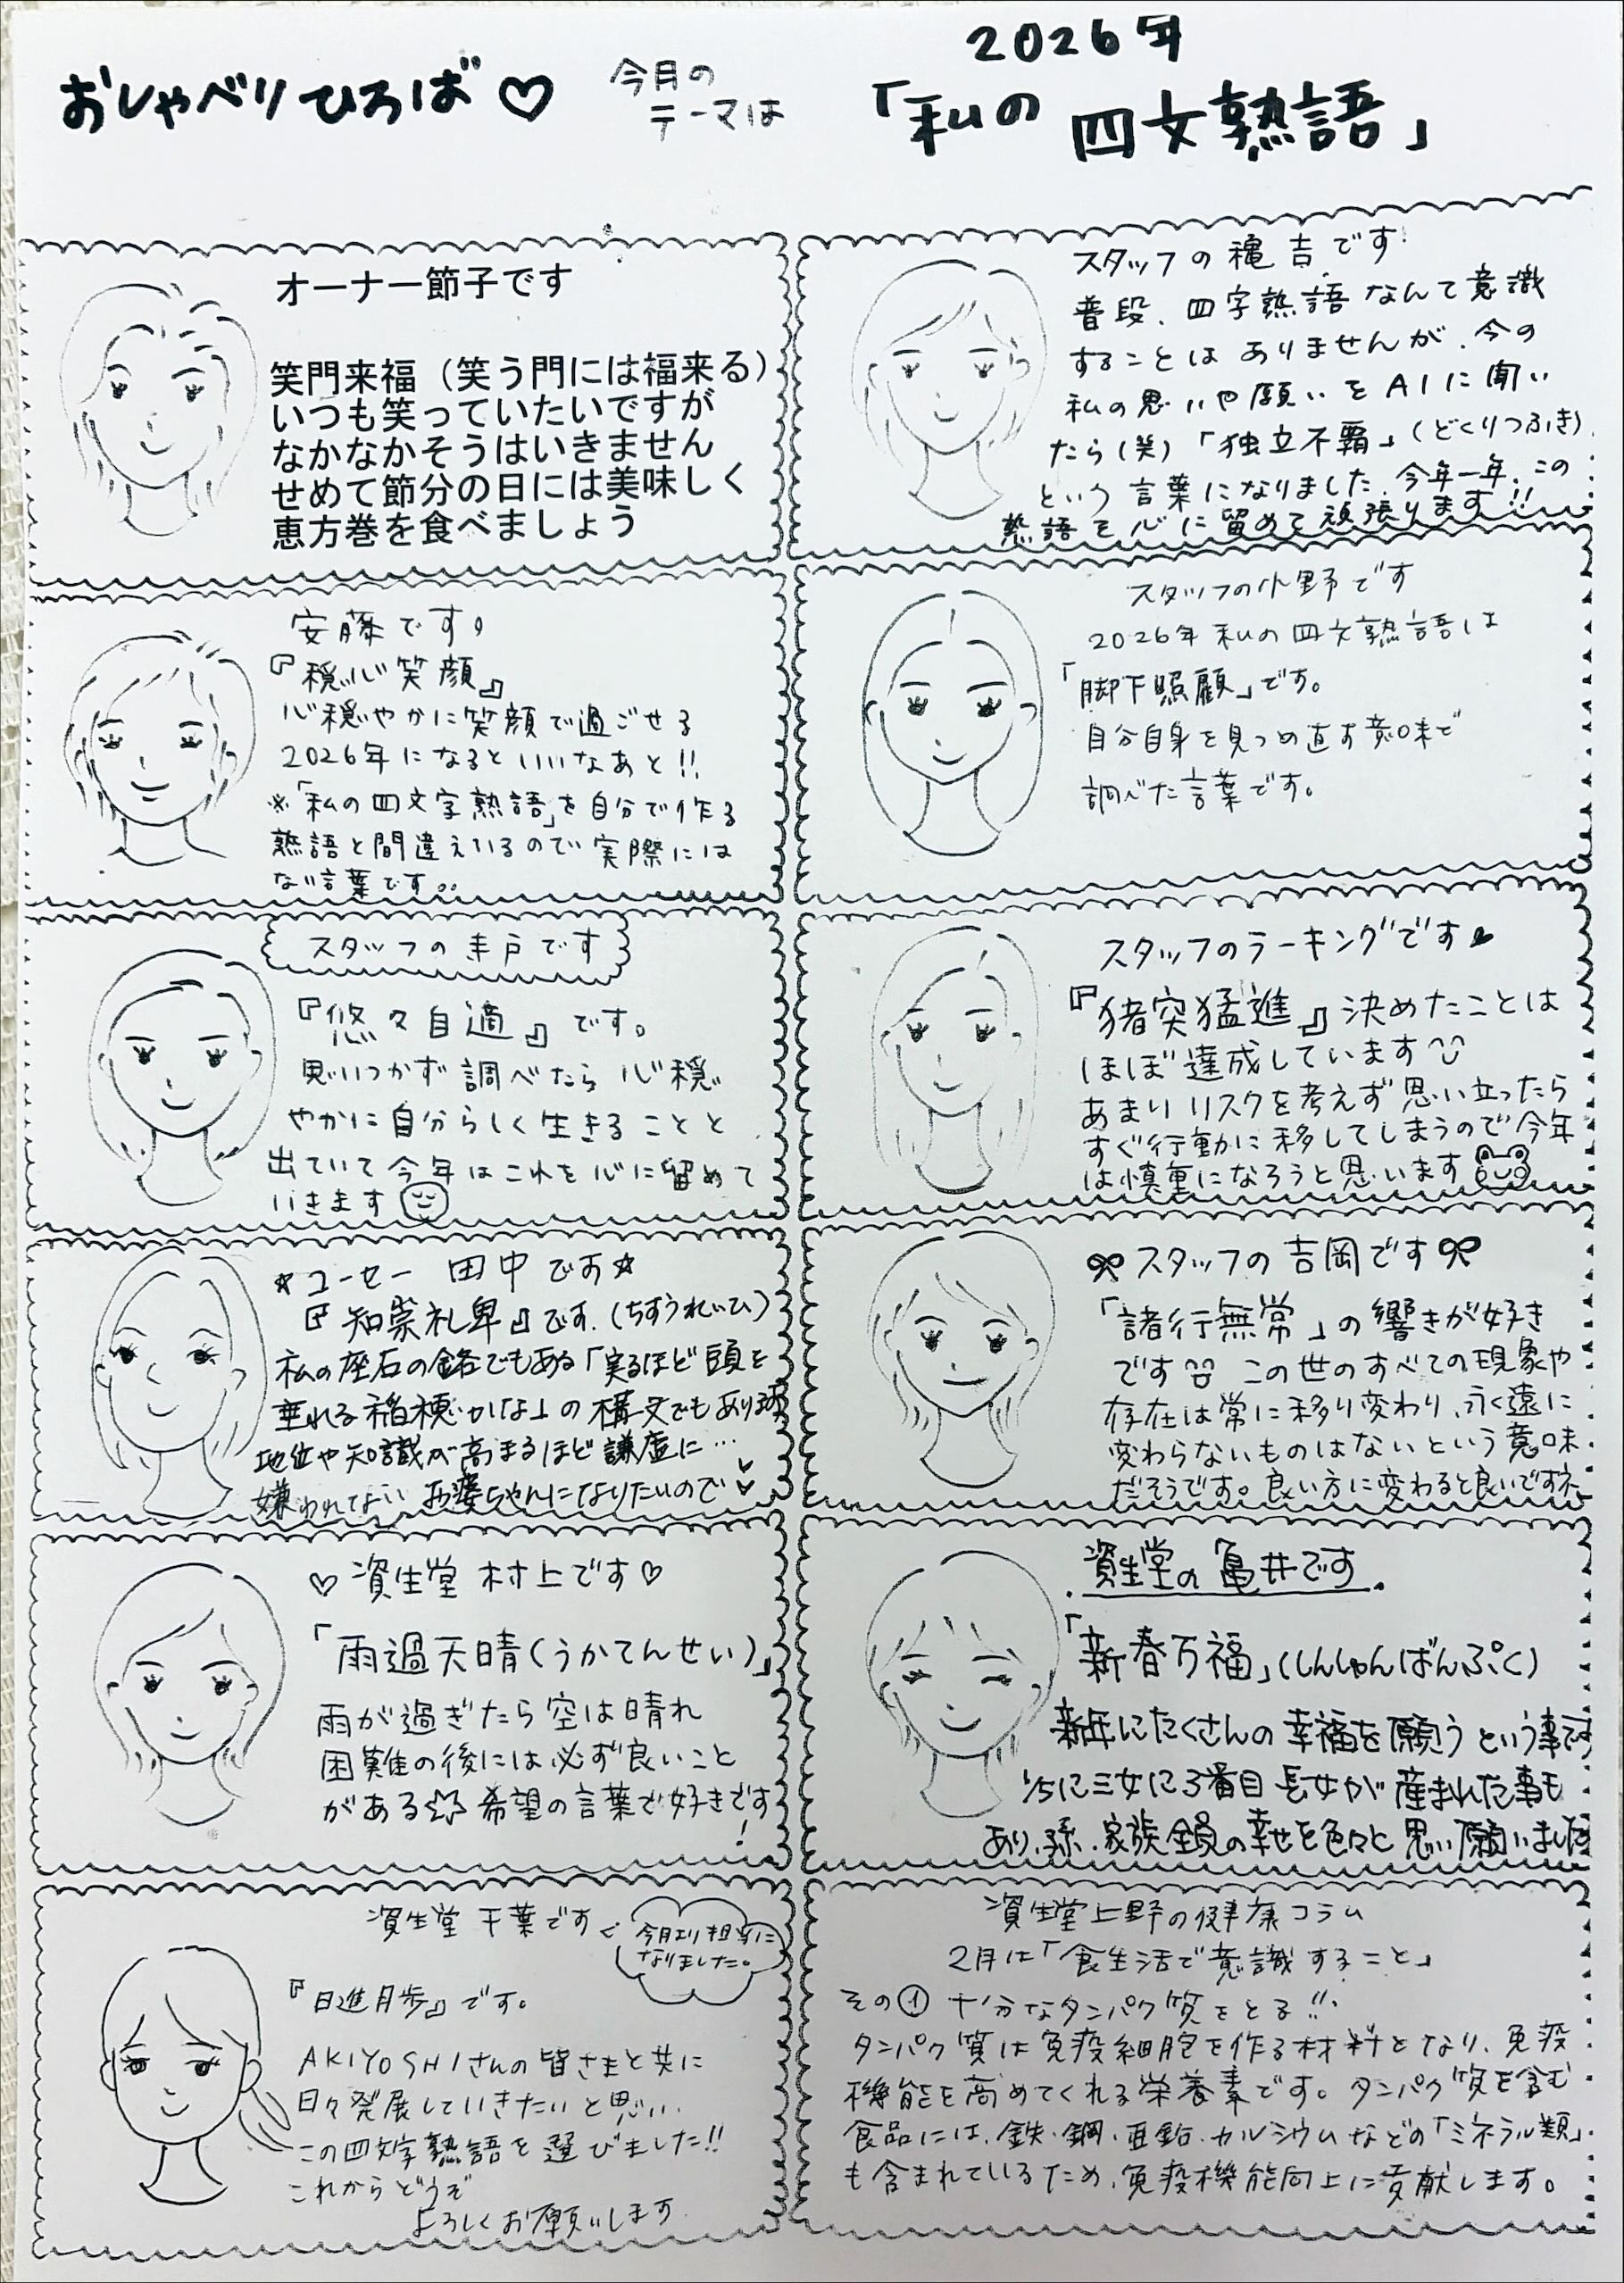 おしゃべりひろば♡
今月の
テーマは
2026年
「私の四文熟語」
オーナー節子です
笑門来福（笑う門には福来る）
いつも笑っていたいですが
なかなかそうはいきません
せめて節分の日には美味しく
恵方巻を食べましょう
スタッフの穐吉です
普段、四字熟語なんて意識
することはありませんが、今の
私の思いや願いをAIに聞い
たら(笑)「独立不覊」(どくりつふき)
という言葉になりました。今年一年、この
熟語を心に留めて頑張ります!!
安藤です。
『穏心笑顔』
心穏やかに笑顔で過ごせる
2026年になるといいなあと!!
※「私の四文字熟語」を自分で作る
熟語と間違えているので実際には
ない言葉です。。
スタッフの小野です
2026年私の四文熟語は
「脚下照顧」です。
自分自身を見つめ直す意味で
調べた言葉です。
スタッフの戸です
『悠々自適』です。
思いつかず調べたら心穏
やかに自分らしく生きることと
出ていて今年はこれを心に留めて
いきます
スタッフのラーキングです
『猪突猛進』決めたことは
ほぼ達成しています
あまりリスクを考えず思い立ったら
すぐ行動に移してしまうので今年
は慎重になろうと思います
☆コーセー 田中です☆
『知崇礼卑』です.(ちすうれいひ)
私の座右の銘でもある「実るほど頭を
垂れる稲穂かな」の構文でもあります
地位や知識が高まるほど謙虚に…
嫌われてないお婆ちゃんになりたいので♡
スタッフの吉岡です
「諸行無常」の響きが好き
です この世のすべての現象や
存在は常に移り変わり、永遠に
変わらないものはないという意味
だそうです。良い方に変わると良いですネ
♡資生堂 村上です♡
「雨過天晴(うかてんせい)」
雨が過ぎたら空は晴れ
困難の後には必ず良いこと
がある☆希望の言葉で好きです
!
資生堂の亀井です
「新春万福」(しんしゅんばんぷく)
新年にたくさんの幸福を願うという事です
1/5に三女に3番目長女が産まれた事も
あり、孫、家族全員の幸せを色々と思い願いました
資生堂 千葉です
今月より担当に
なりました。
『日進月歩』です。
AKIYOSHIさんの皆さまと共に
日々発展していきたいと思い、
この四文字熟語を選びました!!
これからどうぞ
よろしくお願いします
資生堂上野の健康コラム
2月は「食生活で意識すること」
その① 十分なタンパク質をとる!!
タンパク質は免疫細胞を作る材料となり、免疫
機能を高めてくれる栄養素です。タンパク質を含む
食品には、鉄・銅・亜鉛・カルシウムなどの「ミネラル類」
も含まれているため、免疫機能向上に貢献します。